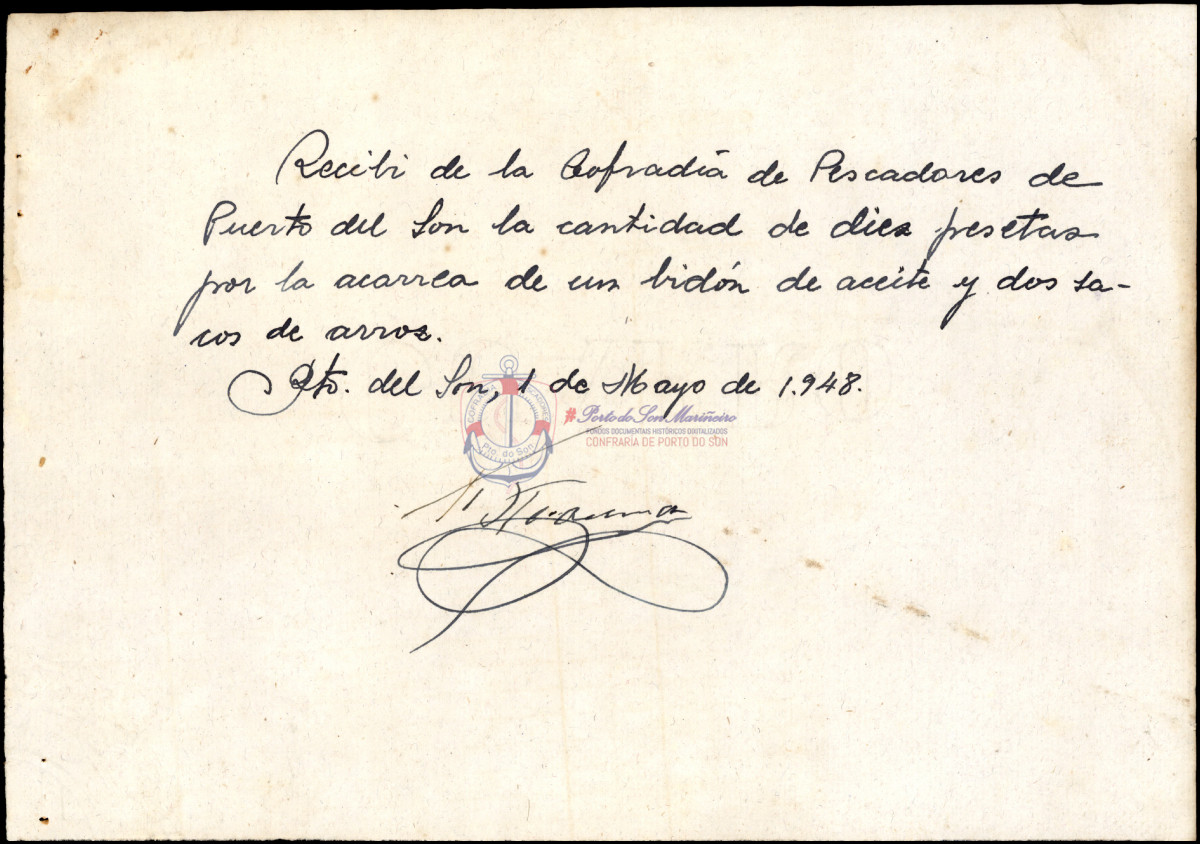 Recibi de la Cofradía de Pescadores de
Puerto del Son la cantidad de diez pesetas
por la acarrea de un bidón de aceite y dos sa-
cos de arroz.
Pto. del Son, 1 de Mayo de 1.948.
COFRADÍA PESCADORES
Pto. do Son
#Porto do Son Mariñeiro
FONDOS DOCUMENTAIS HISTÓRICOS DIXITALIZADOS
CONFRARÍA DE PORTO DO SON